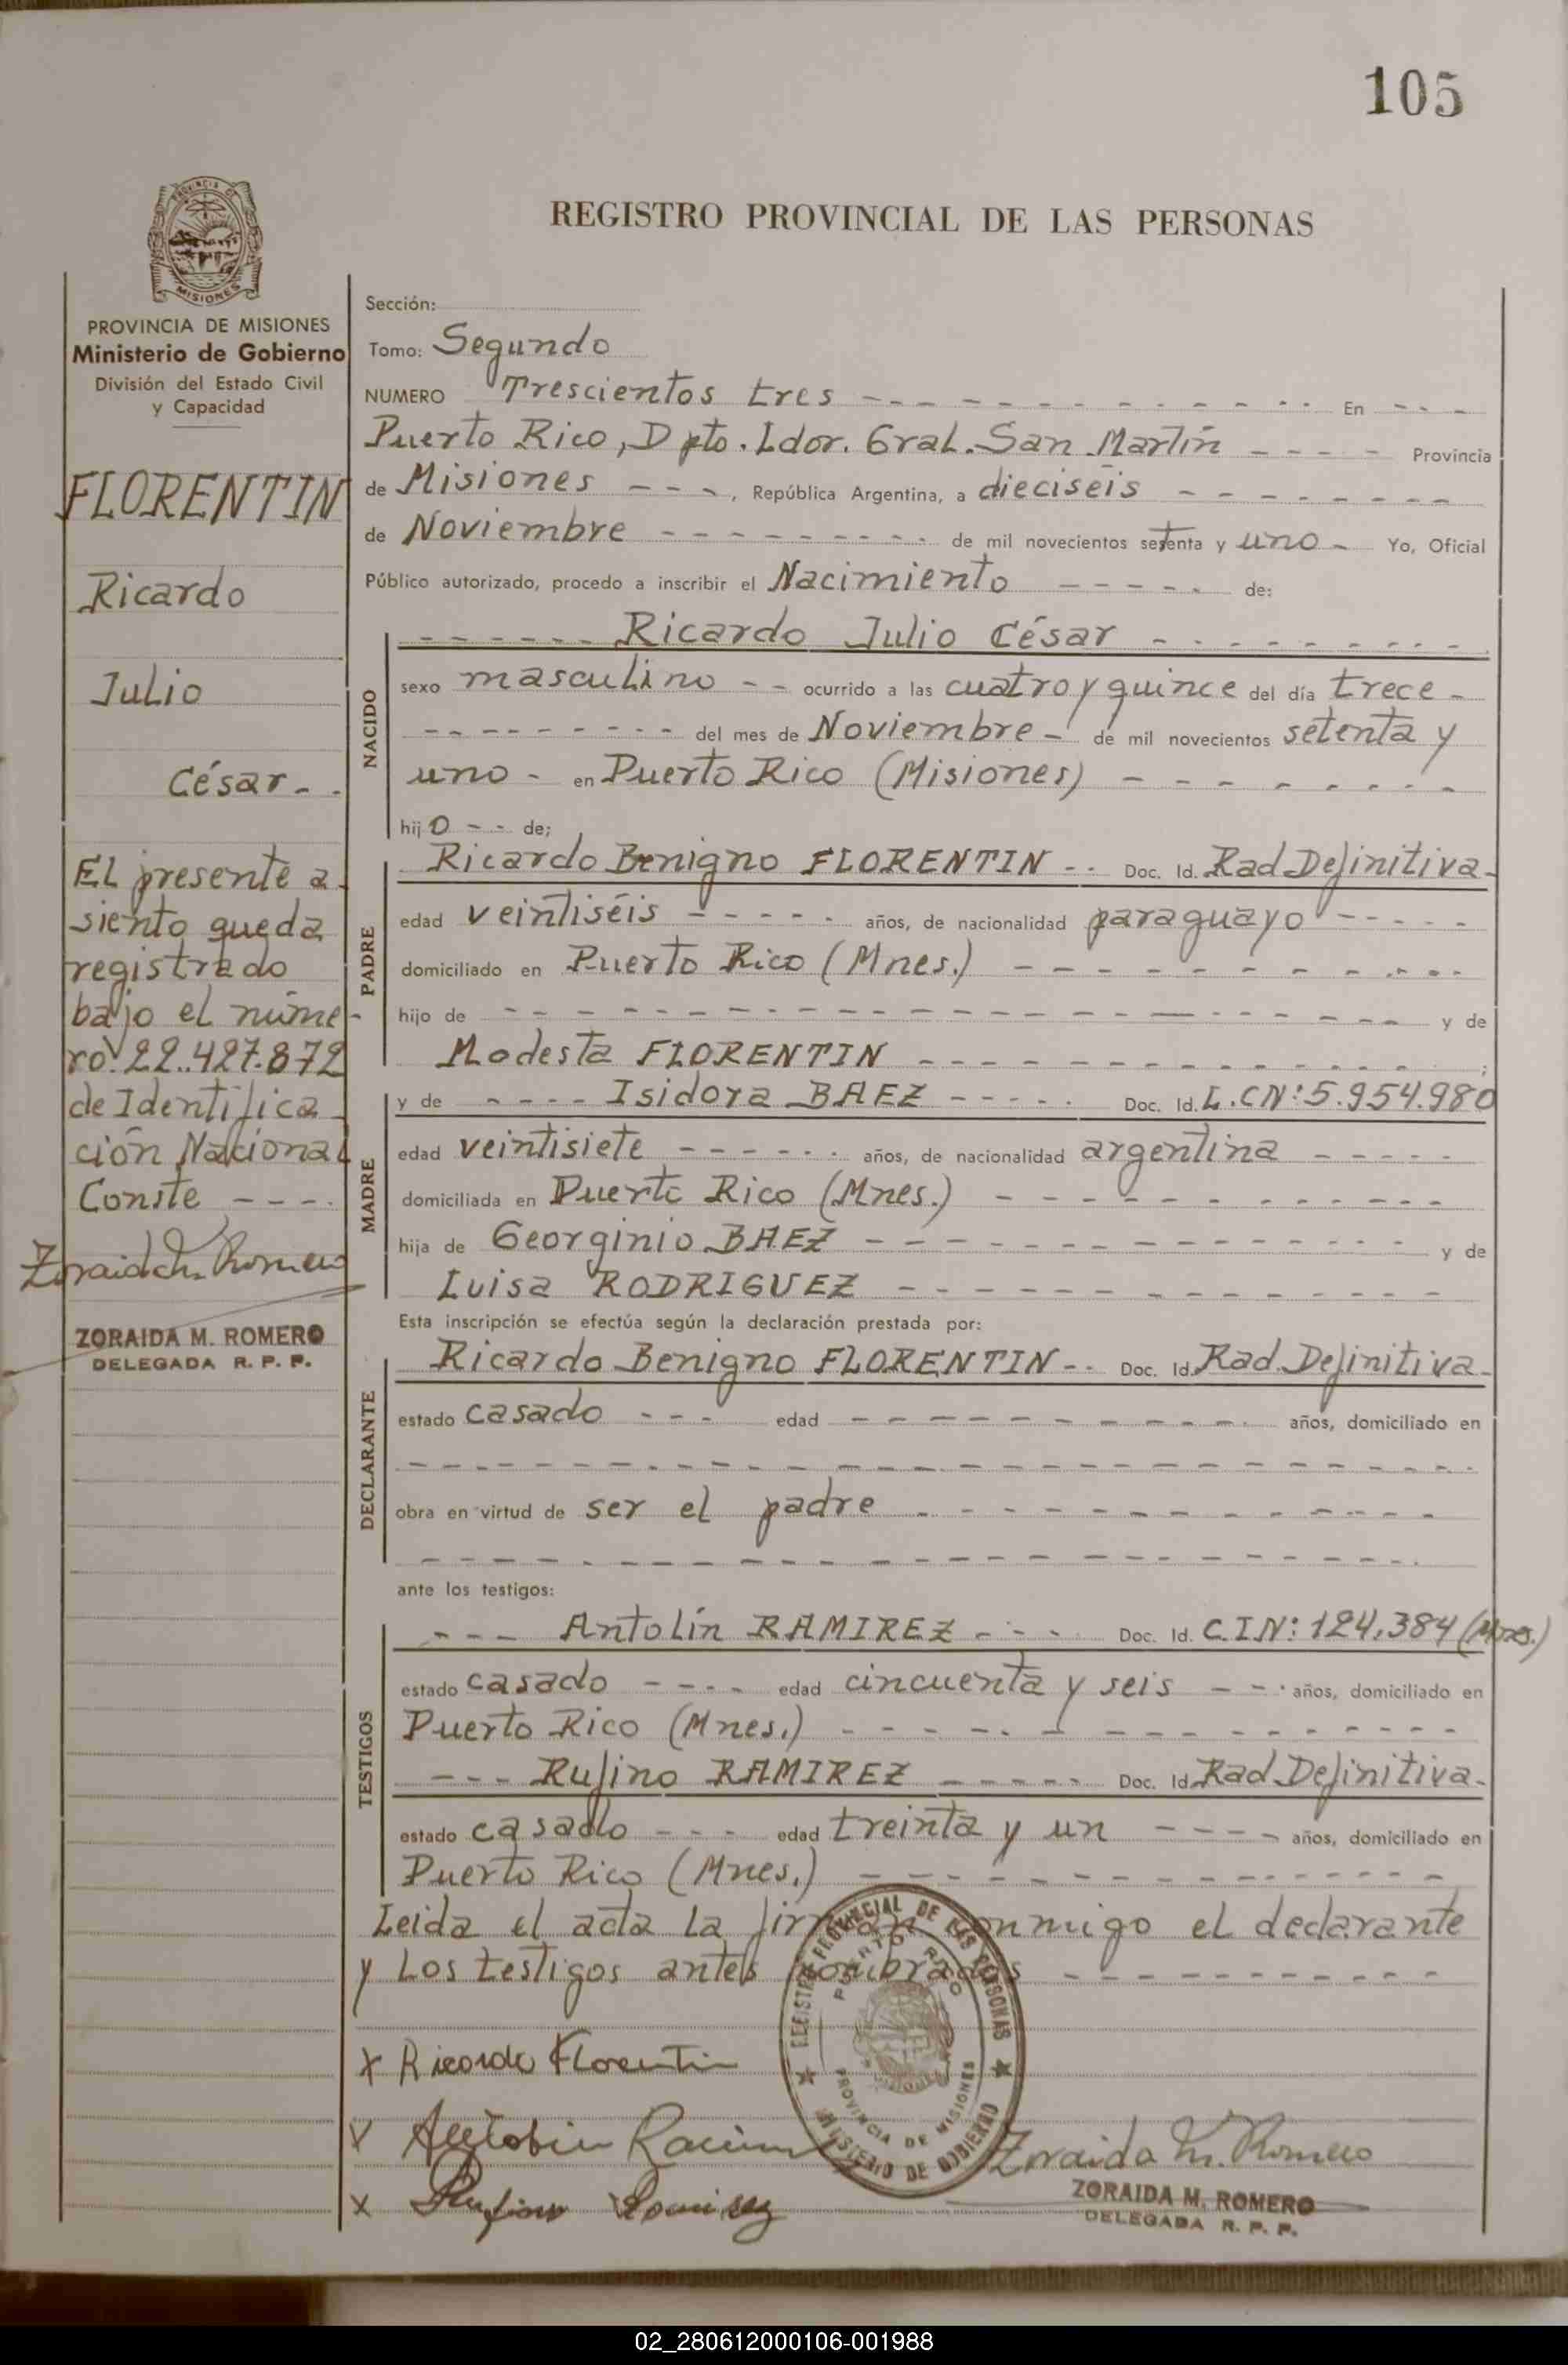 105
REGISTRO PROVINCIAL DE LAS PERSONAS
PROVINCIA DE MISIONES
Ministerio de Gobierno
División del Estado Civil
y Capacidad
FLORENTIN
Ricardo
Julio
César - .
El presente a
siento queda
registrado
bajo el núme-
ro: 22.427.872
de Identifica
ción Nacional
Conste - - - -
Zoraida M. Romero
ZORAIDA M. ROMERO
DELEGADA R. P. P.
Sección:
Tomo: Segundo
NUMERO Trescientos tres - - - En - - -
Puerto Rico, Dpto. Ldor. Gral. San Martín - - - - Provincia
de Misiones - - -, República Argentina, a dieciséis - - -
de Noviembre - - - de mil novecientos setenta y uno - Yo, Oficial
Público autorizado, procedo a inscribir el Nacimiento - - - de:
NACIDO
- - - Ricardo Julio César - - -
sexo masculino - - ocurrido a las cuatro y quince del día trece -
- - - del mes de Noviembre - de mil novecientos setenta y
uno - en Puerto Rico (Misiones) - - -
hijo - - de;
PADRE
Ricardo Benigno FLORENTIN - - Doc. Id. Rad Definitiva -
edad veintiséis - - - años, de nacionalidad paraguayo - - -
domiciliado en Puerto Rico (Mnes.) - - -
hijo de - - - y de
Modesta FLORENTIN - - - ;
MADRE
y de - - - - Isidora BAEZ - - - Doc. Id. L.CNº:5.954.980
edad veintisiete - - - años, de nacionalidad argentina - - -
domiciliada en Puerto Rico (Mnes.) - - -
hija de Georginio BAEZ - - - y de
Luisa RODRIGUEZ - - -
Esta inscripción se efectúa según la declaración prestada por:
DECLARANTE
Ricardo Benigno FLORENTIN - - Doc. Id. Rad. Definitiva -
estado casado - - - edad - - - años, domiciliado en
- - -
obra en virtud de ser el padre - - -
- - -
ante los testigos:
TESTIGOS
- - - Antolín RAMIREZ - - - Doc. Id. C.I.Nº: 124.384 (Mnes.)
estado casado - - - - edad cincuenta y seis - - años, domiciliado en
Puerto Rico (Mnes.) - - -
- - - Rufino RAMIREZ - - - Doc. Id. Rad Definitiva -
estado casado - - - edad treinta y un - - - - años, domiciliado en
Puerto Rico (Mnes.) - - -
Leida el acta la firman conmigo el declarante
y los testigos antes nombrados - - -
REGISTRO PROVINCIAL DE LAS PERSONAS
PUERTO RICO
PROVINCIA DE MISIONES
MINISTERIO DE GOBIERNO
x Ricardo Florentin
x Rufino Ramirez
Zoraida M. Romero
ZORAIDA M. ROMERO
DELEGADA R. P. P.
02_280612000106-001988